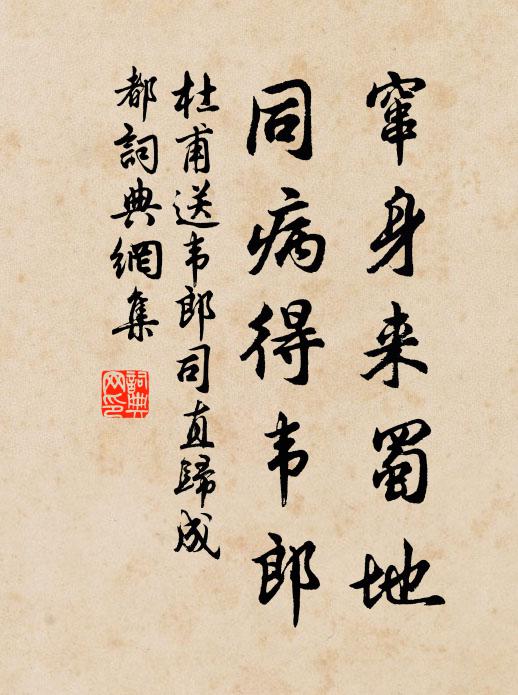 窜身来蜀地
同病得韦郎
杜甫送韦郎司直歸成
都詞典網集
詞典
网印